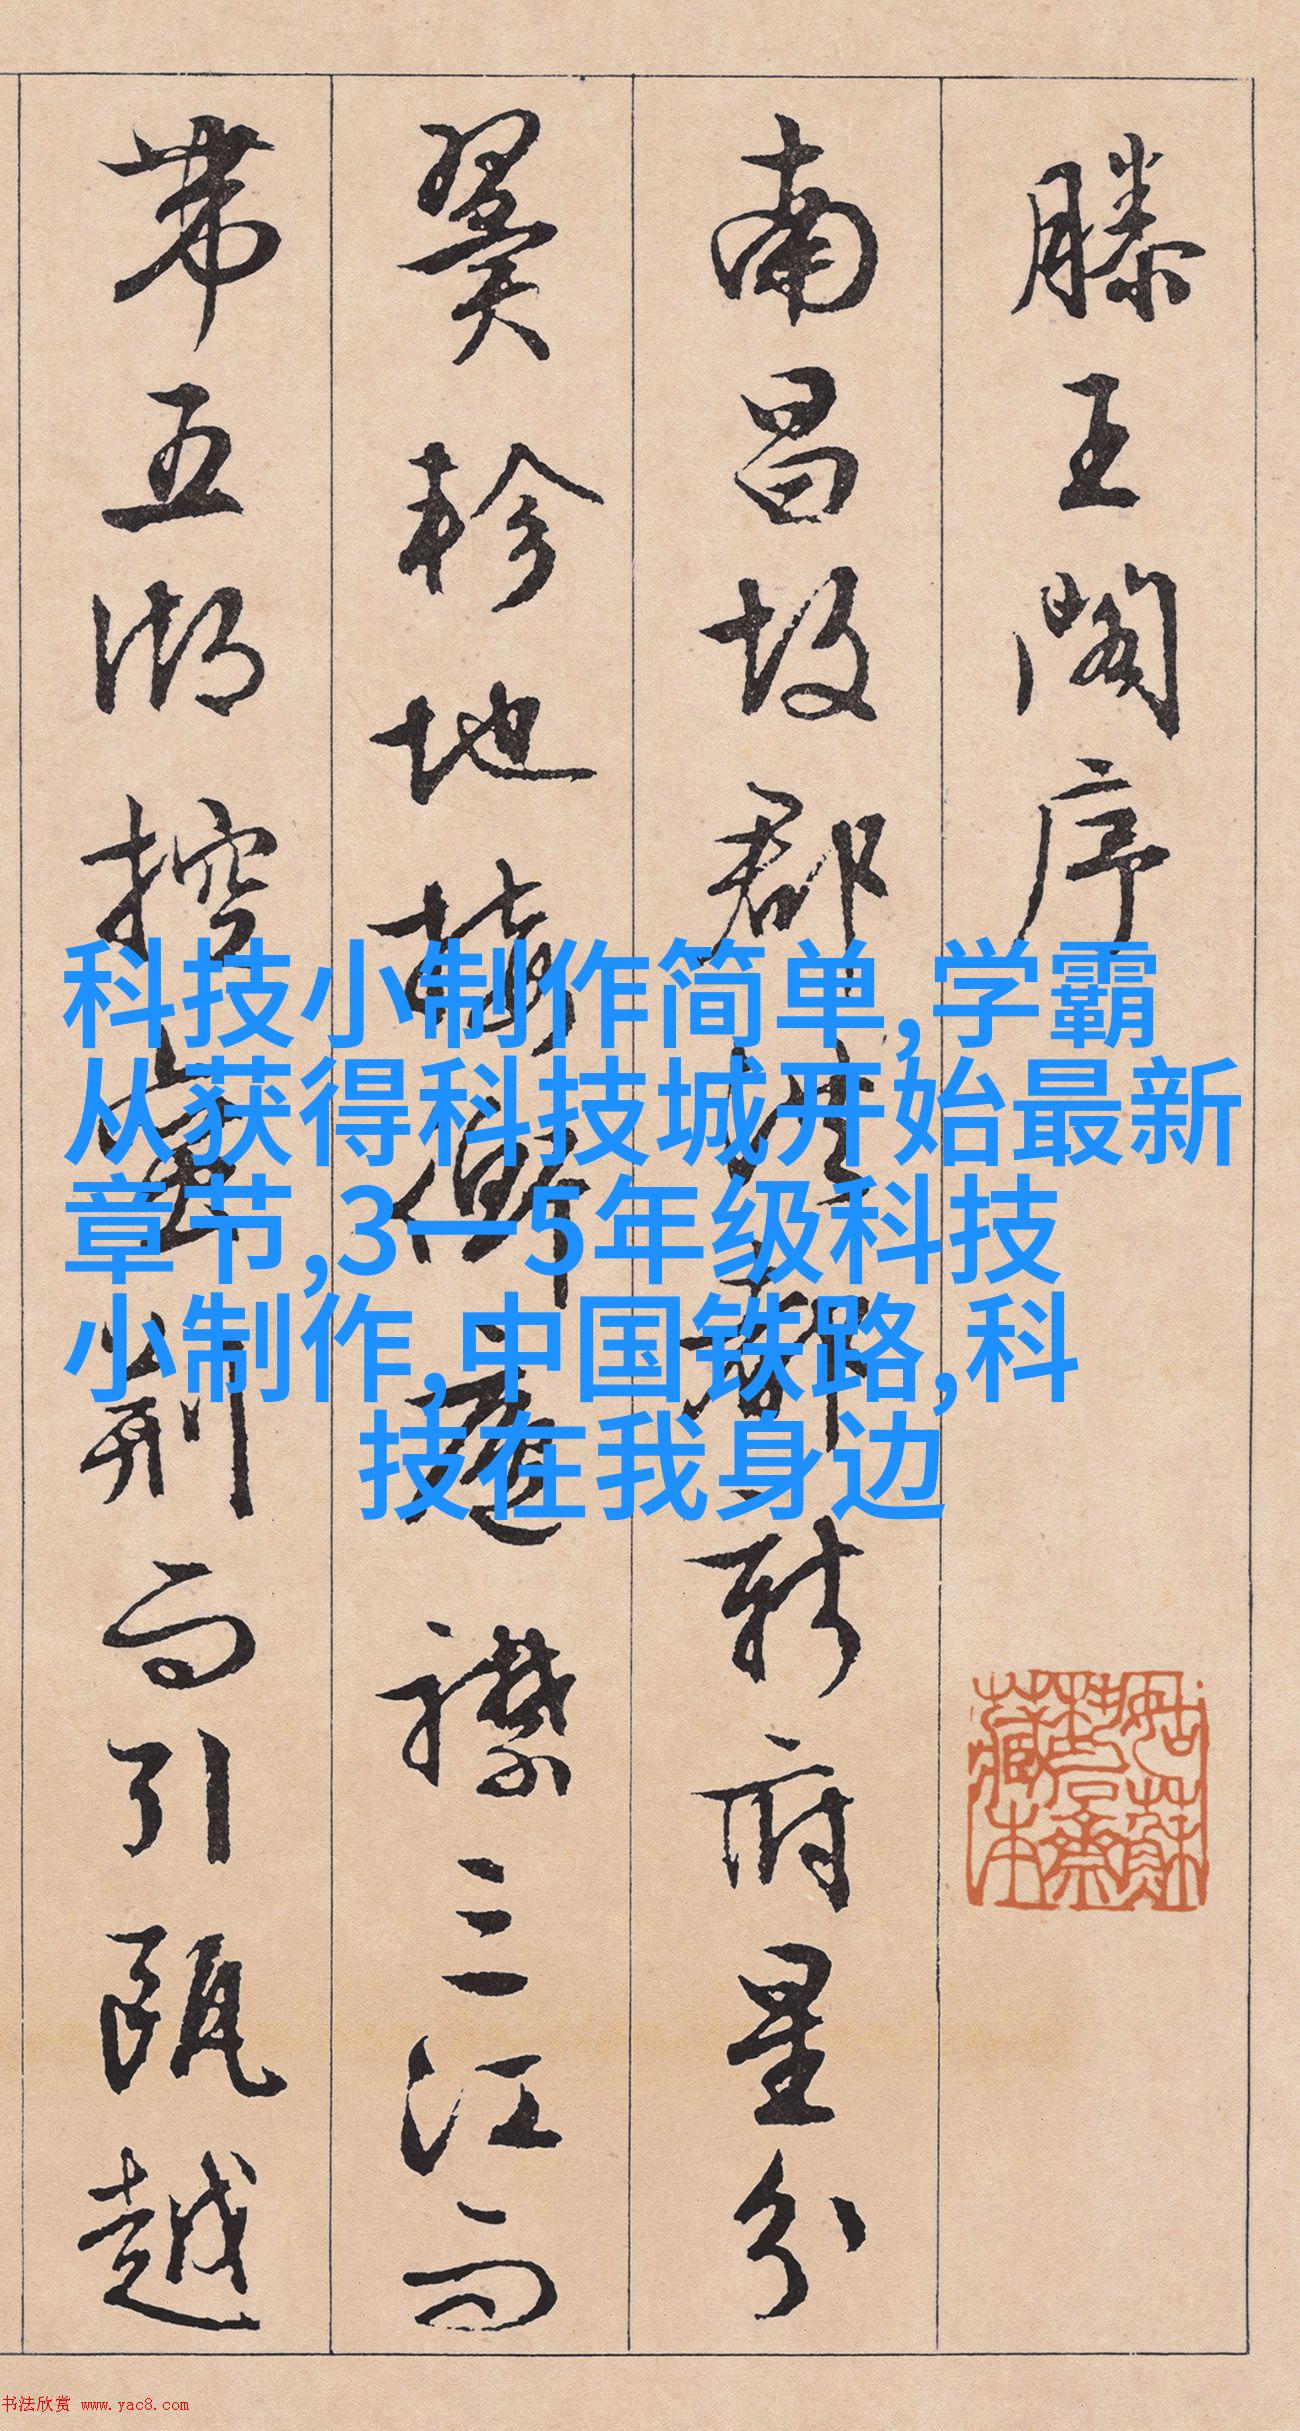 滕王閣序
南昌故郡洪都新府星分
翼軫地接衡廬襟三江而
帶五湖控蠻荆而引甌越
科技小制作简单,学霸
从获得科技城开始最新
章节,3一5年级科技
小制作,中国铁路,科
技在我身边
书法欣赏 www.yac8.com